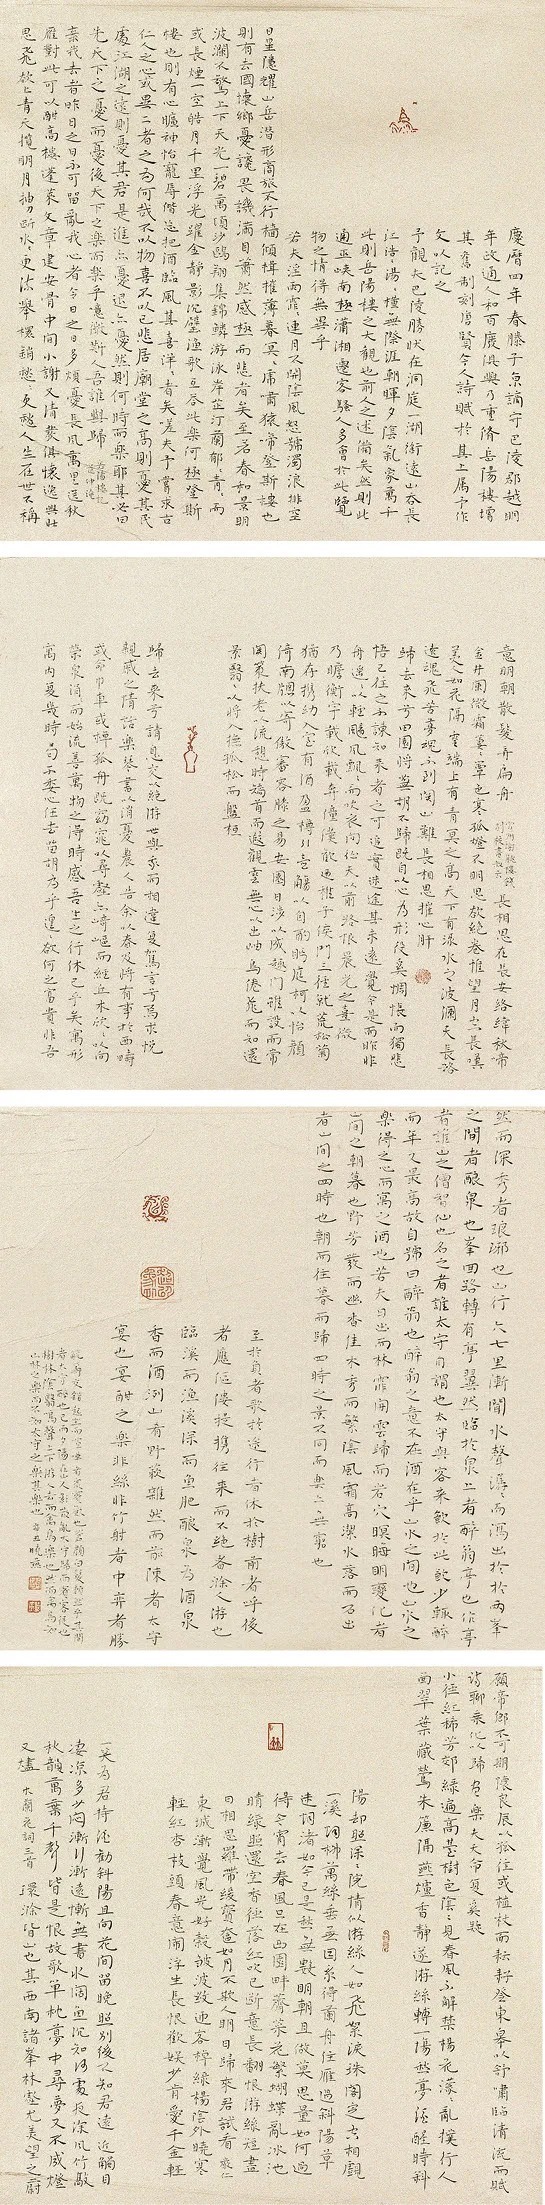 慶曆四年春滕子京謫守巴陵郡越明
年政通人和百廢俱興乃重脩岳陽樓增
其舊制刻唐賢今人詩賦於其上属予作
文以記之
予觀夫巴陵勝狀在洞庭一湖銜遠山吞長
江浩浩湯湯橫無際涯朝暉夕陰氣象萬千
此則岳陽樓之大觀也前人之述備矣然則北
通巫峽南極瀟湘遷客騷人多會於此覽
物之情得無異乎
若夫淫雨霏霏連月不開陰風怒號濁浪排空
日星隱耀山岳潛形商旅不行檣傾楫摧薄暮冥冥虎嘯猿啼登斯樓也
則有去國懷鄉憂讒畏譏滿目蕭然感極而悲者矣至若春和景明
波瀾不驚上下天光一碧萬頃沙鷗翔集錦鱗游泳岸芷汀蘭郁郁青青而
或長煙一空皓月千里浮光躍金靜影沉璧漁歌互答此樂何極登斯
樓也則有心曠神怡寵辱偕忘把酒臨風其喜洋洋者矣嗟夫予嘗求古
仁人之心或異二者之為何哉不以物喜不以己悲居廟堂之高則憂其民
處江湖之遠則憂其君是進亦憂退亦憂然則何時而樂耶其必曰
先天下之憂而憂後天下之樂而樂乎噫微斯人吾誰與歸 岳陽樓記 范仲淹
棄我去者昨日之日不可留亂我心者今日之日多煩憂長風萬里送秋
雁對此可以酣高樓蓬萊文章建安骨中間小謝又清發俱懷逸興壯
思飛欲上青天攬明月抽刀斷水水更流舉杯銷愁愁更愁人生在世不稱
意明朝散髮弄扁舟 宣州謝朓樓餞別校書叔雲 長相思在長安絡緯秋啼
金井闌微霜淒淒簟色寒孤燈不明思欲絕卷帷望月空長嘆
美人如花隔雲端上有青冥之高天下有淥水之波瀾天長路
遠魂飛苦夢魂不到關山難長相思摧心肝
歸去來兮田園將蕪胡不歸既自以心為形役奚惆悵而獨悲
悟已往之不諫知來者之可追實迷途其未遠覺今是而昨非
舟遙遙以輕颺風飄飄而吹衣問征夫以前路恨晨光之熹微
乃瞻衡宇載欣載奔僮僕歡迎稚子候門三徑就荒松菊
猶存攜幼入室有酒盈樽引壺觴以自酌眄庭柯以怡顏
倚南窗以寄傲審容膝之易安園日涉以成趣門雖設而常
關策扶老以流憩時矯首而遐觀雲無心以出岫鳥倦飛而知還
景翳翳以將入撫孤松而盤桓
歸去來兮請息交以絕游世與我而相違復駕言兮焉求悅
親戚之情話樂琴書以消憂農人告余以春及將有事於西疇
或命巾車或棹孤舟既窈窕以尋壑亦崎嶇而經丘木欣欣以向
榮泉涓涓而始流善萬物之得時感吾生之行休已乎矣寓形
寓內復幾時曷不委心任去留胡為乎遑遑欲何之富貴非吾
然而深秀者琅琊也山行六七里漸聞水聲潺潺而瀉出於於兩峯
之間者釀泉也峯回路轉有亭翼然臨於泉上者醉翁亭也作亭
者誰山之僧智仙也名之者誰太守自謂也太守與客來飲於此飲少輒醉
而年又最高故自號曰醉翁也醉翁之意不在酒在乎山水之間也山水之
樂得之心而寓之酒也若夫日出而林霏開雲歸而岩穴暝晦明變化者
山間之朝暮也野芳發而幽香佳木秀而繁陰風霜高潔水落而石出
者山間之四時也朝而往暮而歸四時之景不同而樂亦無窮也
至於負者歌於途行者休於樹前者呼後
者應傴僂提攜往來而不絕者滁人游也
臨溪而漁溪深而魚肥釀泉為酒泉
香而酒洌山肴野蔌雜然而前陳者太守
宴也宴酣之樂非絲非竹射者中弈者勝
願帝鄉不可期懷良辰以孤往或植杖而耘耔登東皋以舒嘯臨清流而賦
詩聊乘化以歸盡樂夫天命復奚疑
小徑紅稀芳郊綠遍高臺樹色陰陰見春風不解禁楊花濛濛亂撲行人
面翠葉藏鶯朱簾隔燕爐香靜逐游絲轉一場愁夢酒醒時斜
陽卻照深深院情似游絲人如飛絮淚珠閣定空相覷
一溪烟柳萬絲垂無因系得蘭舟住雁過斜陽草
迷烟渚如今已是愁無數明朝且做莫思量如何過
得今宵去春風只在西園畔薺菜花繁蝴蝶亂冰池
晴綠照還空香徑落紅吹已斷意長翻恨游絲短盡
日相思羅帶緩寶奩如月不欺人明日歸來君試看
東城漸覺風光好縠皺波紋迎客棹綠楊陰外曉寒
輕紅杏枝頭春意鬧浮生長恨歡娛少肯愛千金輕
一笑為君持酒勸斜陽且向花間留晚照別後不知君遠近觸目
淒涼多少悶漸行漸遠漸無書水闊魚沉知何處夜深風竹敲
秋韻萬葉千聲皆是恨故歌單枕夢中尋夢又不成燈
又燼 木蘭花詞三首 環滁皆山也其西南諸峯林壑尤美望之蔚